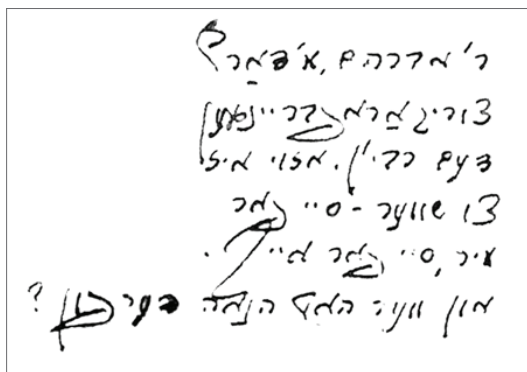 ר' אברהם, מ'דאַרף
צוריק אַראפברײנגען
דעם רבי'ן. אזוי איז
צו שווער - סײ פאר
מיר, סײ פאר אייך.
און ווער האט הנאה דערפון?